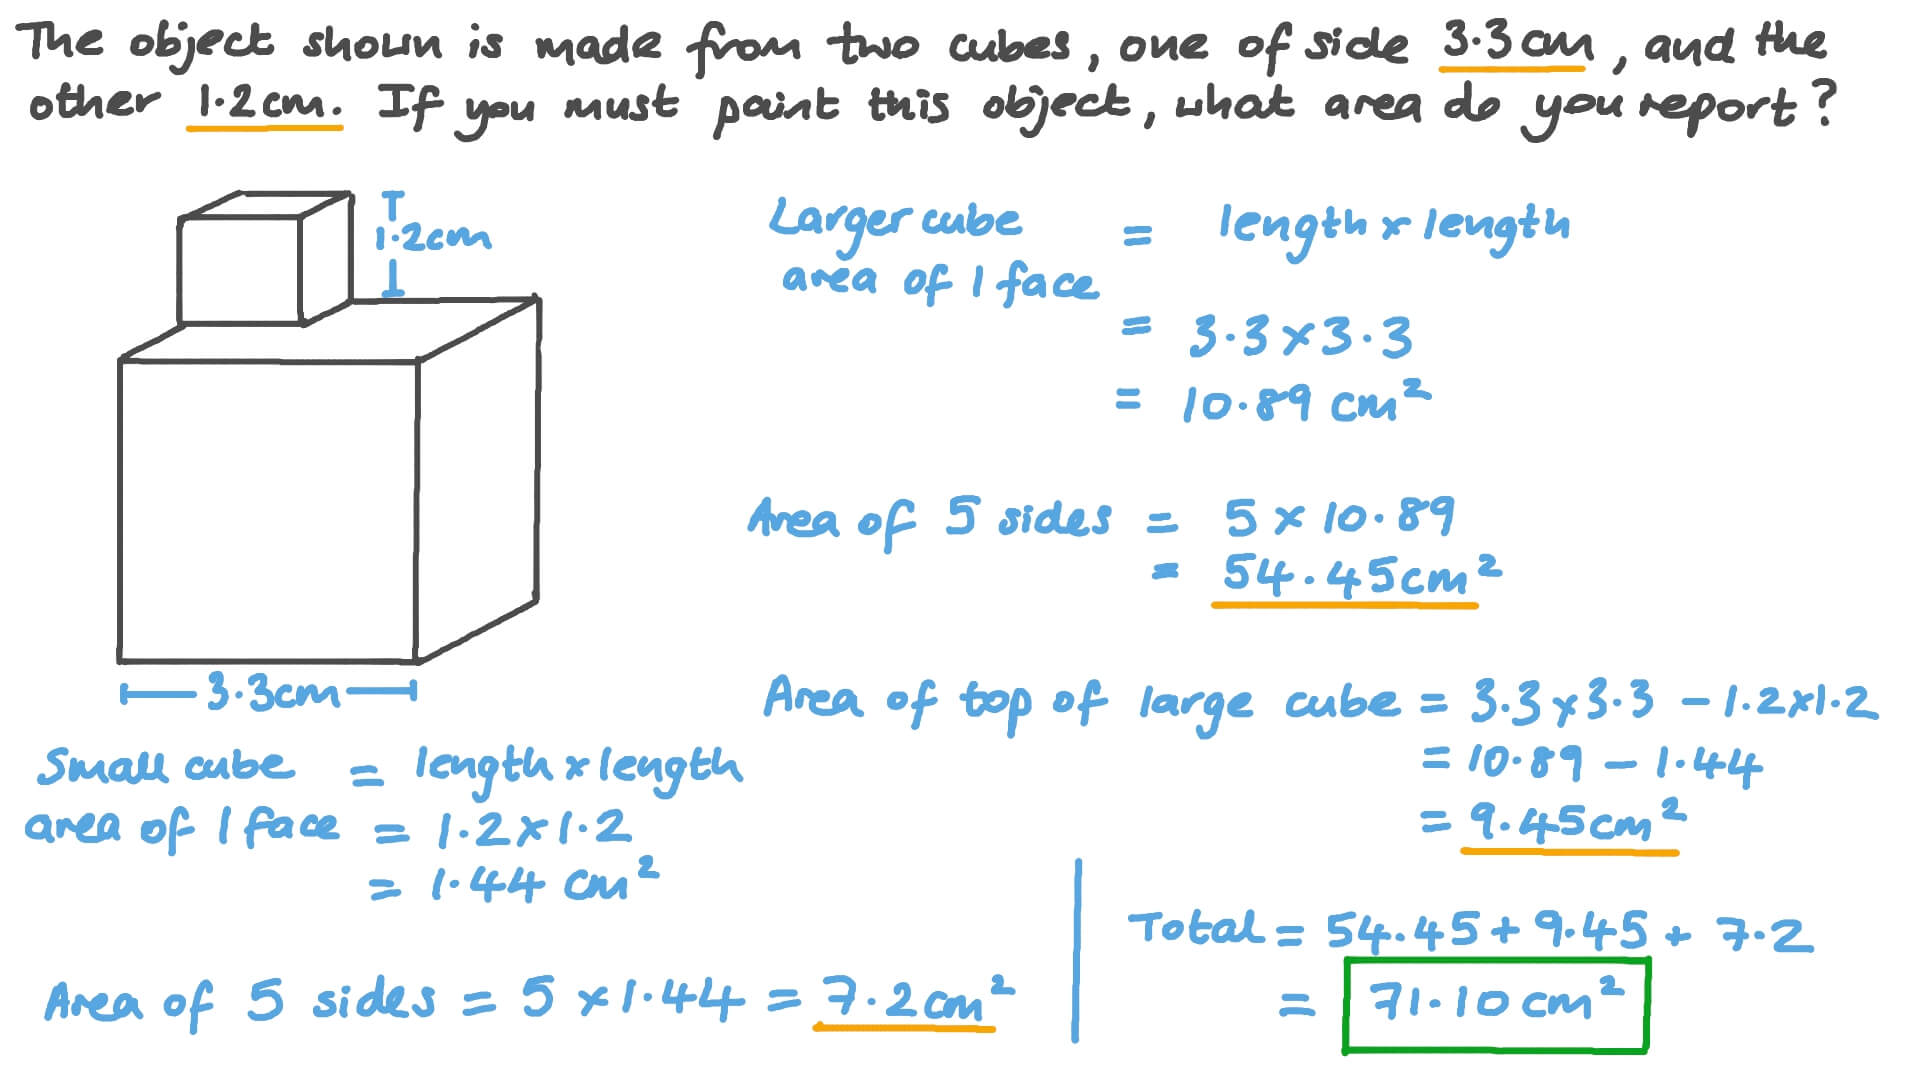 The object shown is made from two cubes, one of side 3.3cm, and the
other 1.2cm. If you must paint this object, what area do you report?
1.2cm
3.3cm
Larger cube = length x length
area of 1 face
= 3.3x3.3
= 10.89 cm²
Area of 5 sides = 5 x 10.89
= 54.45cm²
Area of top of large cube = 3.3x3.3 - 1.2x1.2
= 10.89 - 1.44
= 9.45cm²
Small cube = length x length
area of 1 face = 1.2x1.2
= 1.44 cm²
Area of 5 sides = 5 x1.44 = 7.2cm²
Total = 54.45 + 9.45 + 7.2
= 71.10 cm²